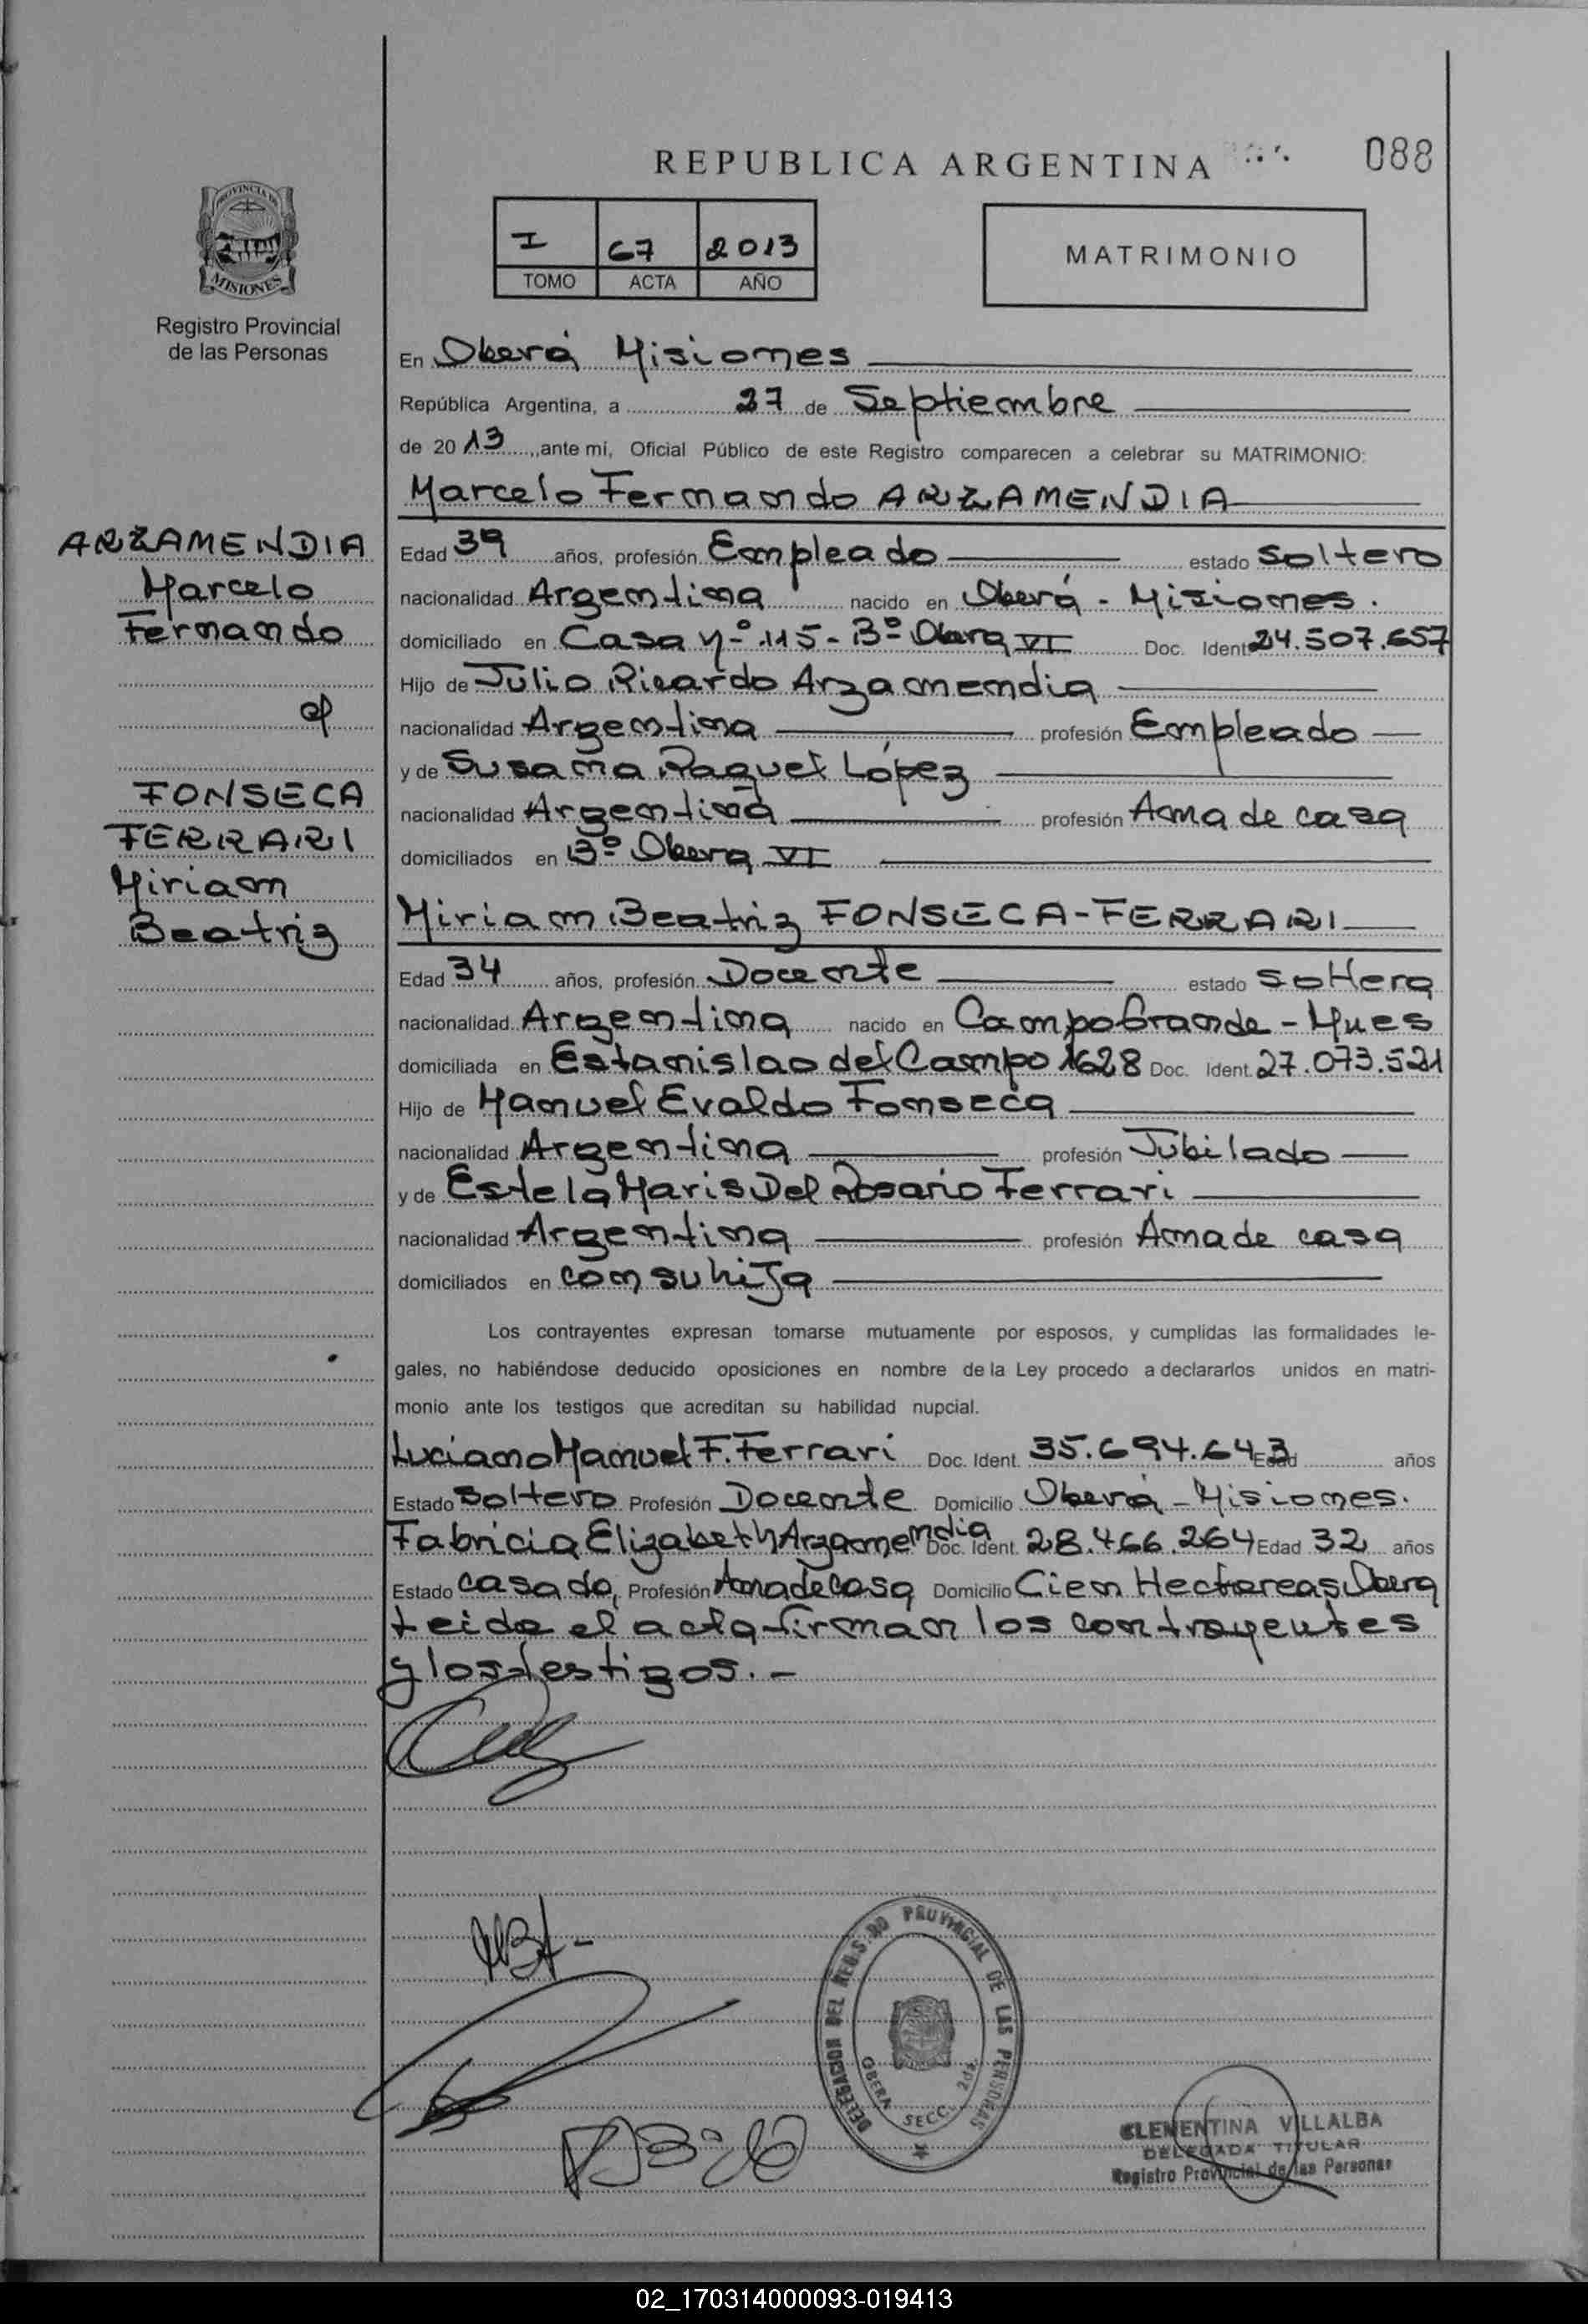 REPUBLICA ARGENTINA
088
PROVINCIA DE
MISIONES
Registro Provincial
de las Personas
I 67 2013
TOMO ACTA AÑO
MATRIMONIO
En Oberá Misiones
República Argentina, a 27 de Septiembre
de 2013, ante mi, Oficial Público de este Registro comparecen a celebrar su MATRIMONIO:
Marcelo Fernando ARZAMENDIA
ARZAMENDIA
Marcelo
Fernando
FONSECA
FERRARI
Miriam
Beatriz
Edad 39 años, profesión Empleado estado Soltero
nacionalidad Argentina nacido en Oberá - Misiones.
domiciliado en Casa Nº 115 - Bº Obera VI Doc. Ident 24.507.657
Hijo de Julio Ricardo Arzamendia
nacionalidad Argentina profesión Empleado
y de Susana Raquel López
nacionalidad Argentina profesión Ama de casa
domiciliados en Bº Obera VI
Miriam Beatriz FONSECA-FERRARI
Edad 34 años, profesión Docente estado Soltera
nacionalidad Argentina nacido en Campo Grande - Mnes
domiciliada en Estanislao del Campo 1628 Doc. Ident. 27.073.521
Hijo de Manuel Evaldo Fonseca
nacionalidad Argentina profesión Jubilado
y de Estela Maris Del Rosario Ferrari
nacionalidad Argentina profesión Ama de casa
domiciliados en con su hija
Los contrayentes expresan tomarse mutuamente por esposos, y cumplidas las formalidades le-
gales, no habiéndose deducido oposiciones en nombre de la Ley procedo a declararlos unidos en matri-
monio ante los testigos que acreditan su habilidad nupcial.
Luciano Manuel F. Ferrari Doc. Ident. 35.694.643 Edad años
Estado Soltero Profesión Docente Domicilio Oberá - Misiones.
Fabricia Elizabeth Arzamendia Doc. Ident. 28.466.264 Edad 32 años
Estado casada, Profesión Ama de casa Domicilio Cien Hectareas Obera
Leida el acta firman los contrayentes
y los testigos. -
DELEGACION DEL REGISTRO PROVINCIAL DE LAS PERSONAS
OBERA SECC. 2da.
CLEMENTINA VILLALBA
DELEGADA TITULAR
Registro Provincial de las Personas
02_170314000093-019413